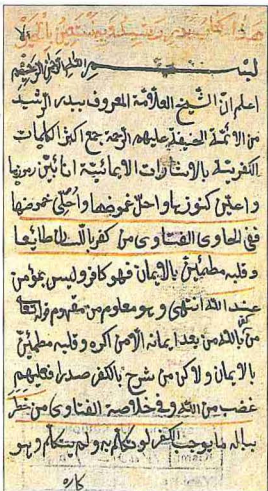 هذا كتاب بدر رشيد
بسم الله الرحمن الرحيم
اعلم ان الشيخ العلامة المعروف ببدر الرشيد
من الائمة الحنيفة عليهم الرحمة جمع اكثر الكلمات
الكفرية بالاشارات الايمائية انا ابين رموزها
واعين كنوزها واحل غموضها واحلى غموضها
ففى الحاوى الفتاوى من كفر باللسان طائعا
وقلبه مطمئن بالايمان فهو كافر وليس بمؤمن
عند الله انتهى وهو معلوم من مفهوم قوله تعالى
من كفر بالله من بعد ايمانه الا من اكره وقلبه مطمئن
بالايمان ولاكن من شرح بالكفر صدرا فعليهم
غضب من الله وفى خلاصة الفتاوى من خطر
بباله ما يوجب الكفر لو تكلم به ولم يتكلم وهو
كاره